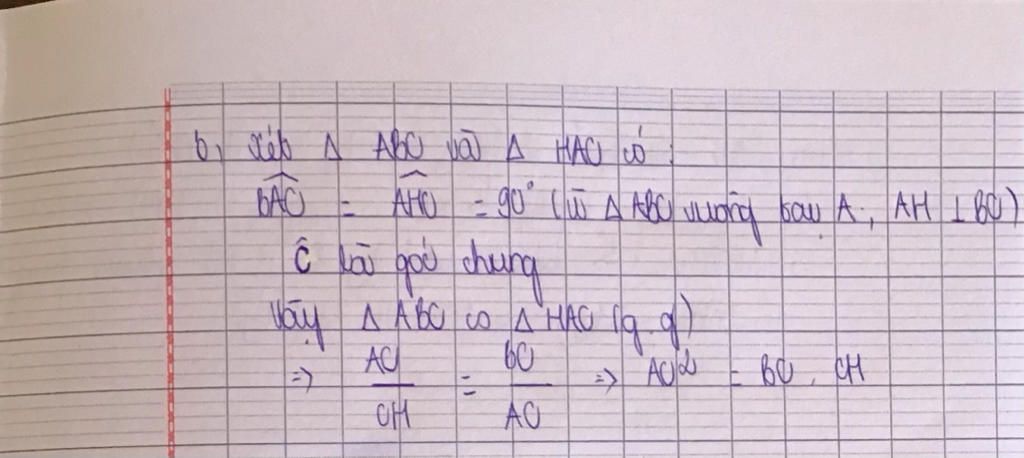 b, Xét Δ ABC và Δ HAC có :
\widehat{BAC} = \widehat{AHC} = 90° (vì Δ ABC vuông tại A, AH ⊥ BC)
Ĉ là góc chung
Vậy Δ ABC ∽ Δ HAC (g.g)
=> AC/CH = BC/AC => AC² = BC . CH